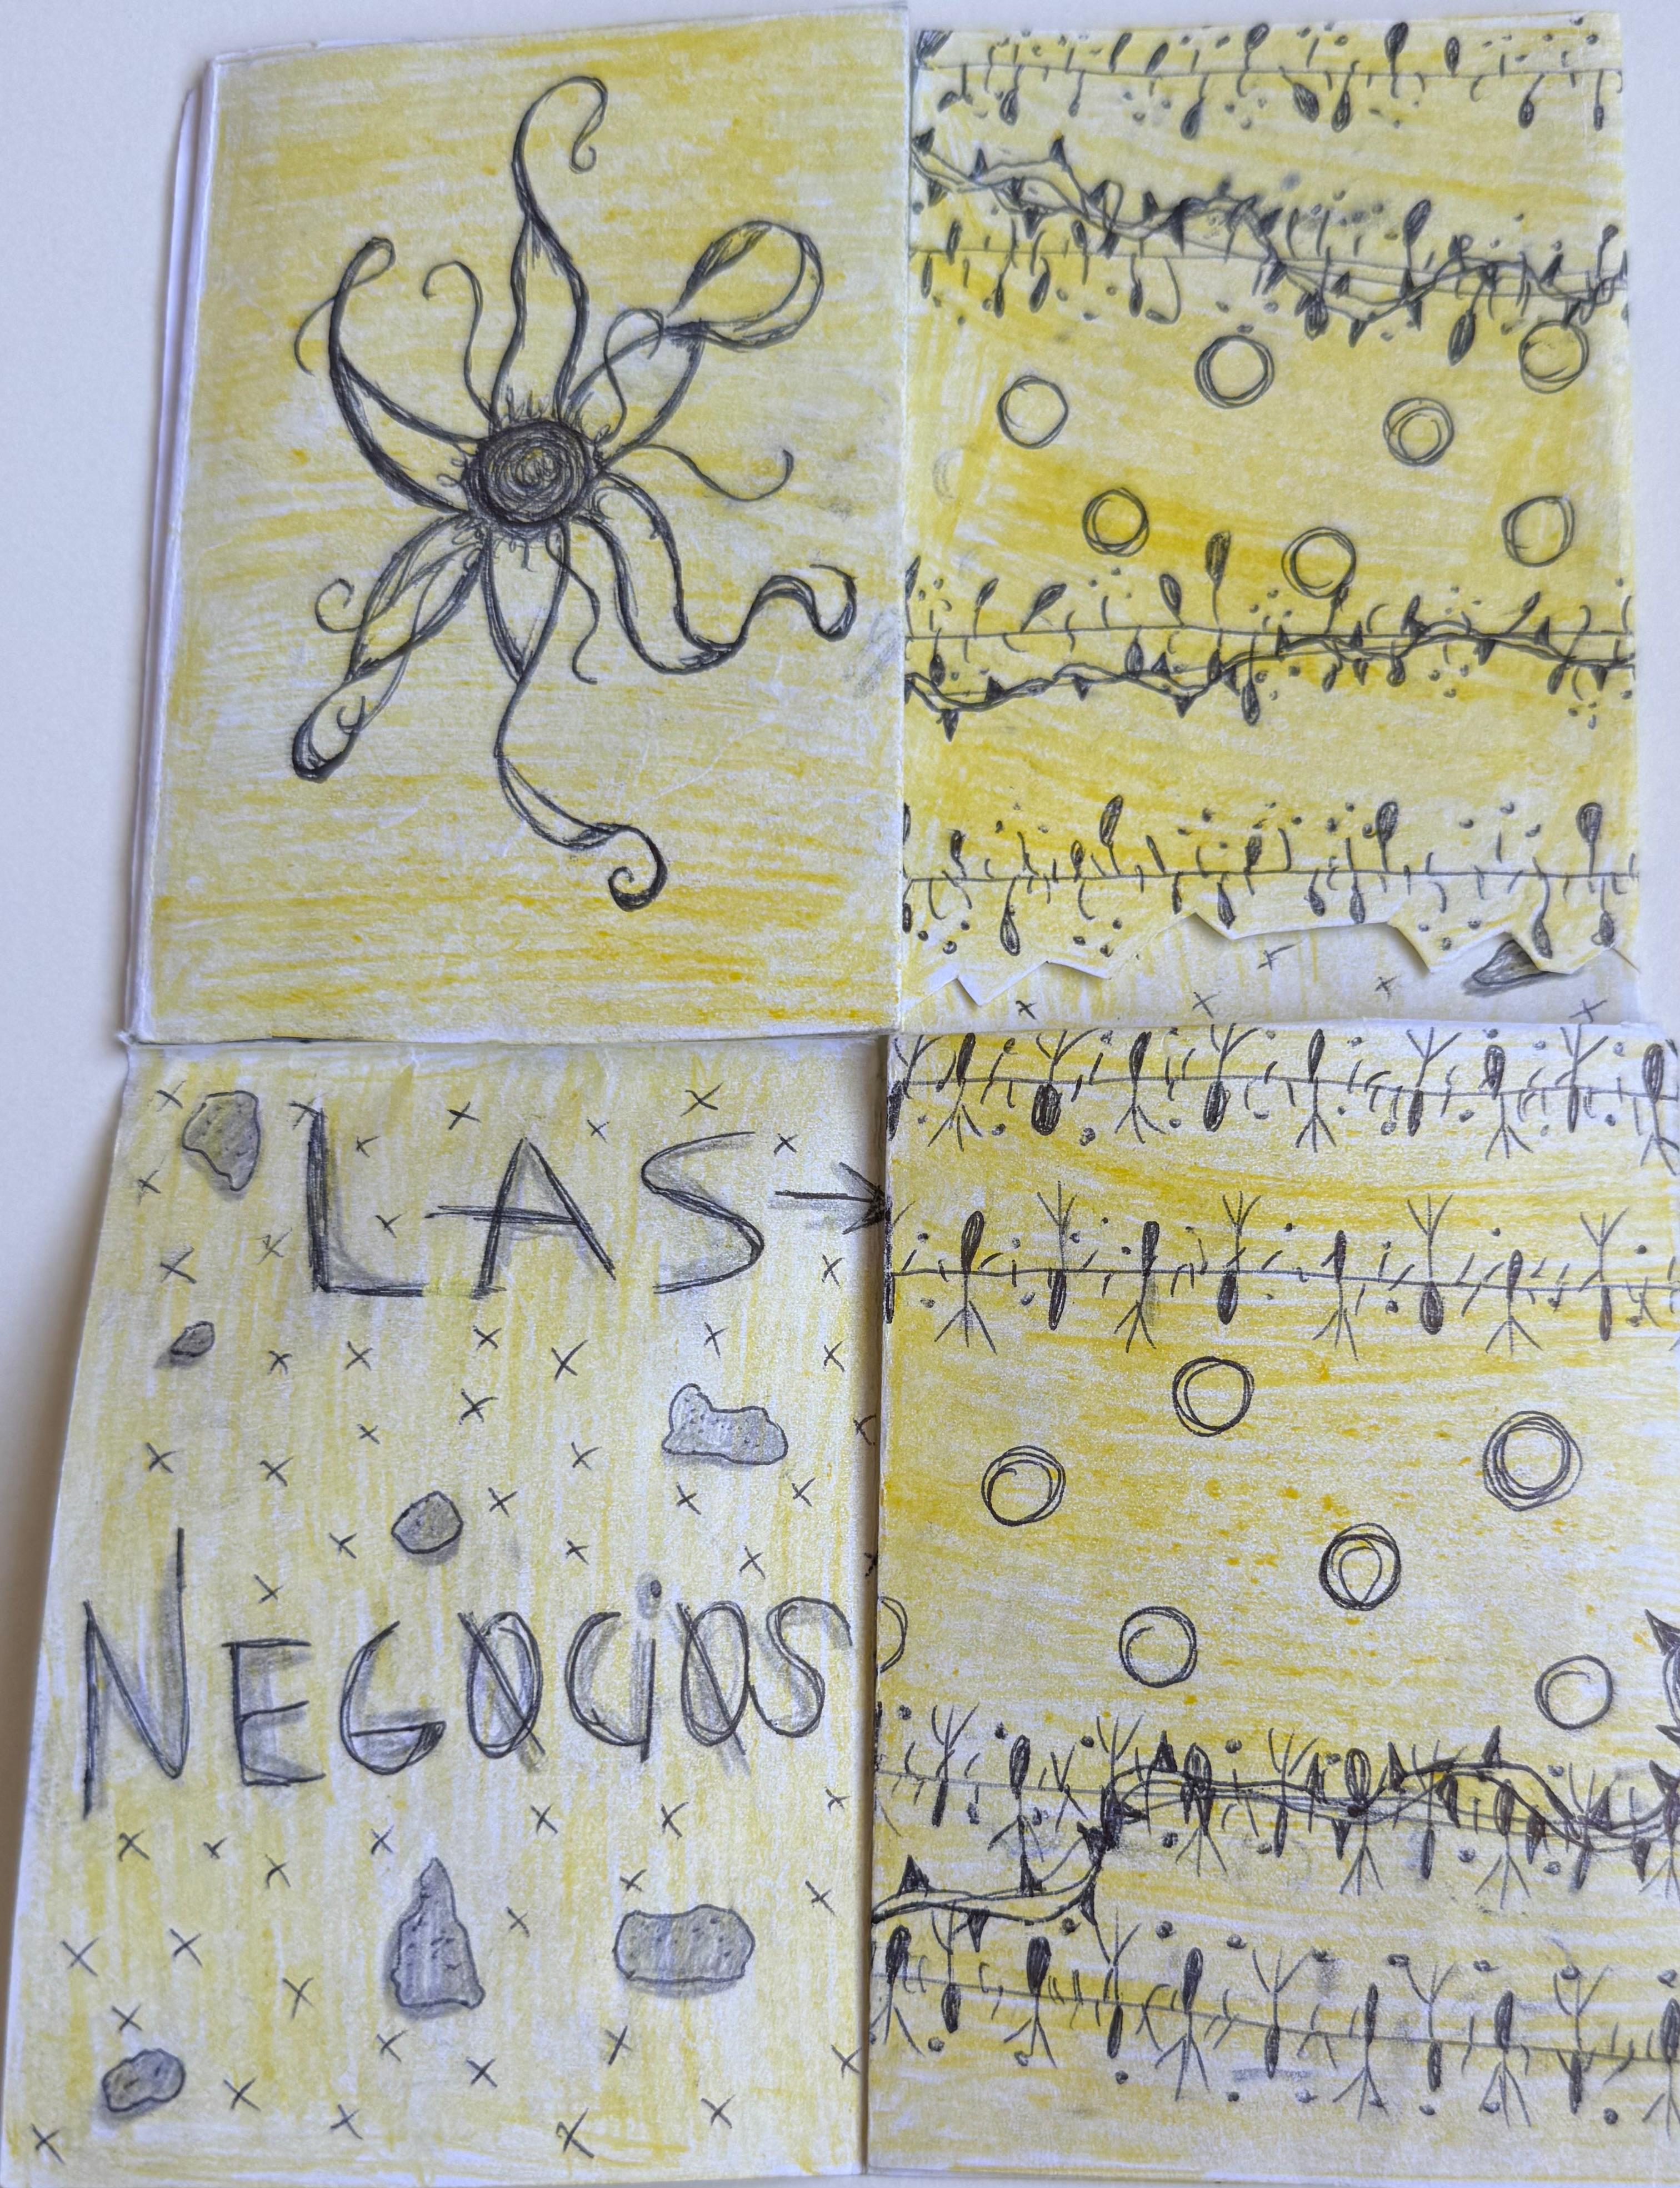 LAS →
NEGOCiOS